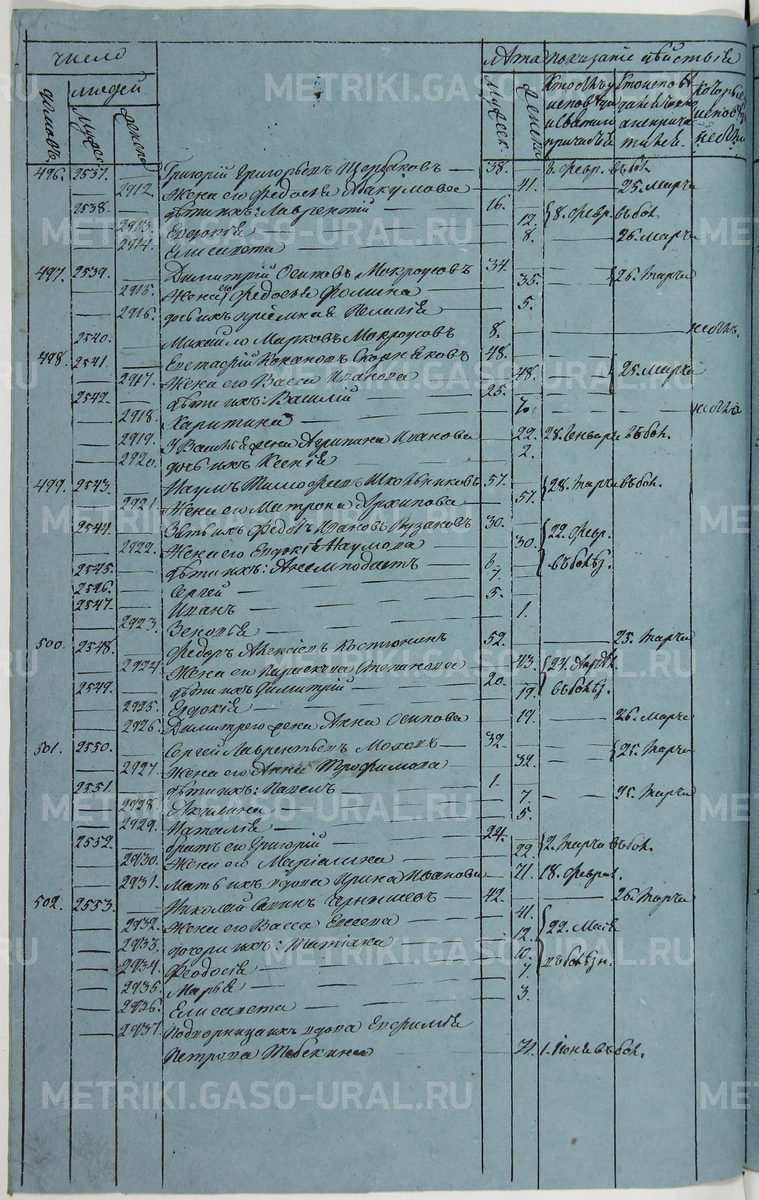 число лѣта показаніе дѣйствія
домовъ людей мужес. женск. мужеск. женск. Кто обѣщ.
496. 2537. Григорій Григорьевъ Щербаковъ 38. 6. февр. въ бол.
2912. Жена его Федосья Абакумова 41. 25. Марта
2538. дѣти ихъ: Лаврентій 16. 8. февр. въ бол.
2913. Евдокія 12.
2914. Елисавета 8. 26. Марта
497. 2539. Димитрій Осиповъ Мокроусовъ 34. 26. Марта
2915. Жена его Федосья Фомина 35.
2916. дочь ихъ пріемная Пелагія 5.
2540. Михайло Марковъ Мокроусовъ 8. не бых.
498. 2541. Евстафій Скорняковъ 48. 25. Марта
2917. Жена его Васса Иванова 48.
2542. дѣти ихъ: Василій 25.
2918. Харитина не бых
2919. У Василья жена Агрипина Иванова 22. 28. Генваря въ бол.
2920. дочь ихъ Ксенія 2.
499. 2543. Наумъ Тимофеевъ Школьниковъ 57. 28. Марта въ бол.
2921. Жена его Матрона Архипова 57.
2544. Зять ихъ Федоръ Ивановъ Пузановъ 30. 22. февр.
2922. Жена его Евдокія Наумова 30. въ болѣз.
2545. дѣти ихъ: 6.
2546. Сергей 7.
2547. Иванъ 5.
2923. Зеновья 1.
500. 2548. Федоръ Алексіевъ Костюнинъ 52. 25. Марта
2924. Жена его Параскева Степанова 43.
2549. дѣти ихъ Димитрій 20. въ болѣз.
2925. Евдокія 19.
2926. Димитрего жена Анна Осипова 19. 26. Марта
501. 2550. Сергей Лаврентьевъ Моховъ 32. 25. Марта
2927. Жена его Анна Трофимова 32.
2551. дѣти ихъ: Павелъ 1.
2928. Акилина 7. 25. Марта
2929. Наталія 5.
2552. братъ его Григорій 24. 2. Марта въ бол.
2930. Жена его Маріамна 22.
2931. Мать ихъ вдова Ирина Иванова 71. 18. феврал.
502. 2553. Николай Савинъ Чернышевъ 42. 26. Марта
2932. Жена его Васса Елисеева 41. 22. Маія
2933. дочери ихъ: Татіана 12. въ болѣзн.
2934. Феодосія 10.
2935. Марья 7.
2936. Елисавета 3.
2937. Подворница ихъ вдова Евфимія
Петрова 71. 1. Іюня въ бол.
METRIKI.GASO-URAL.RU